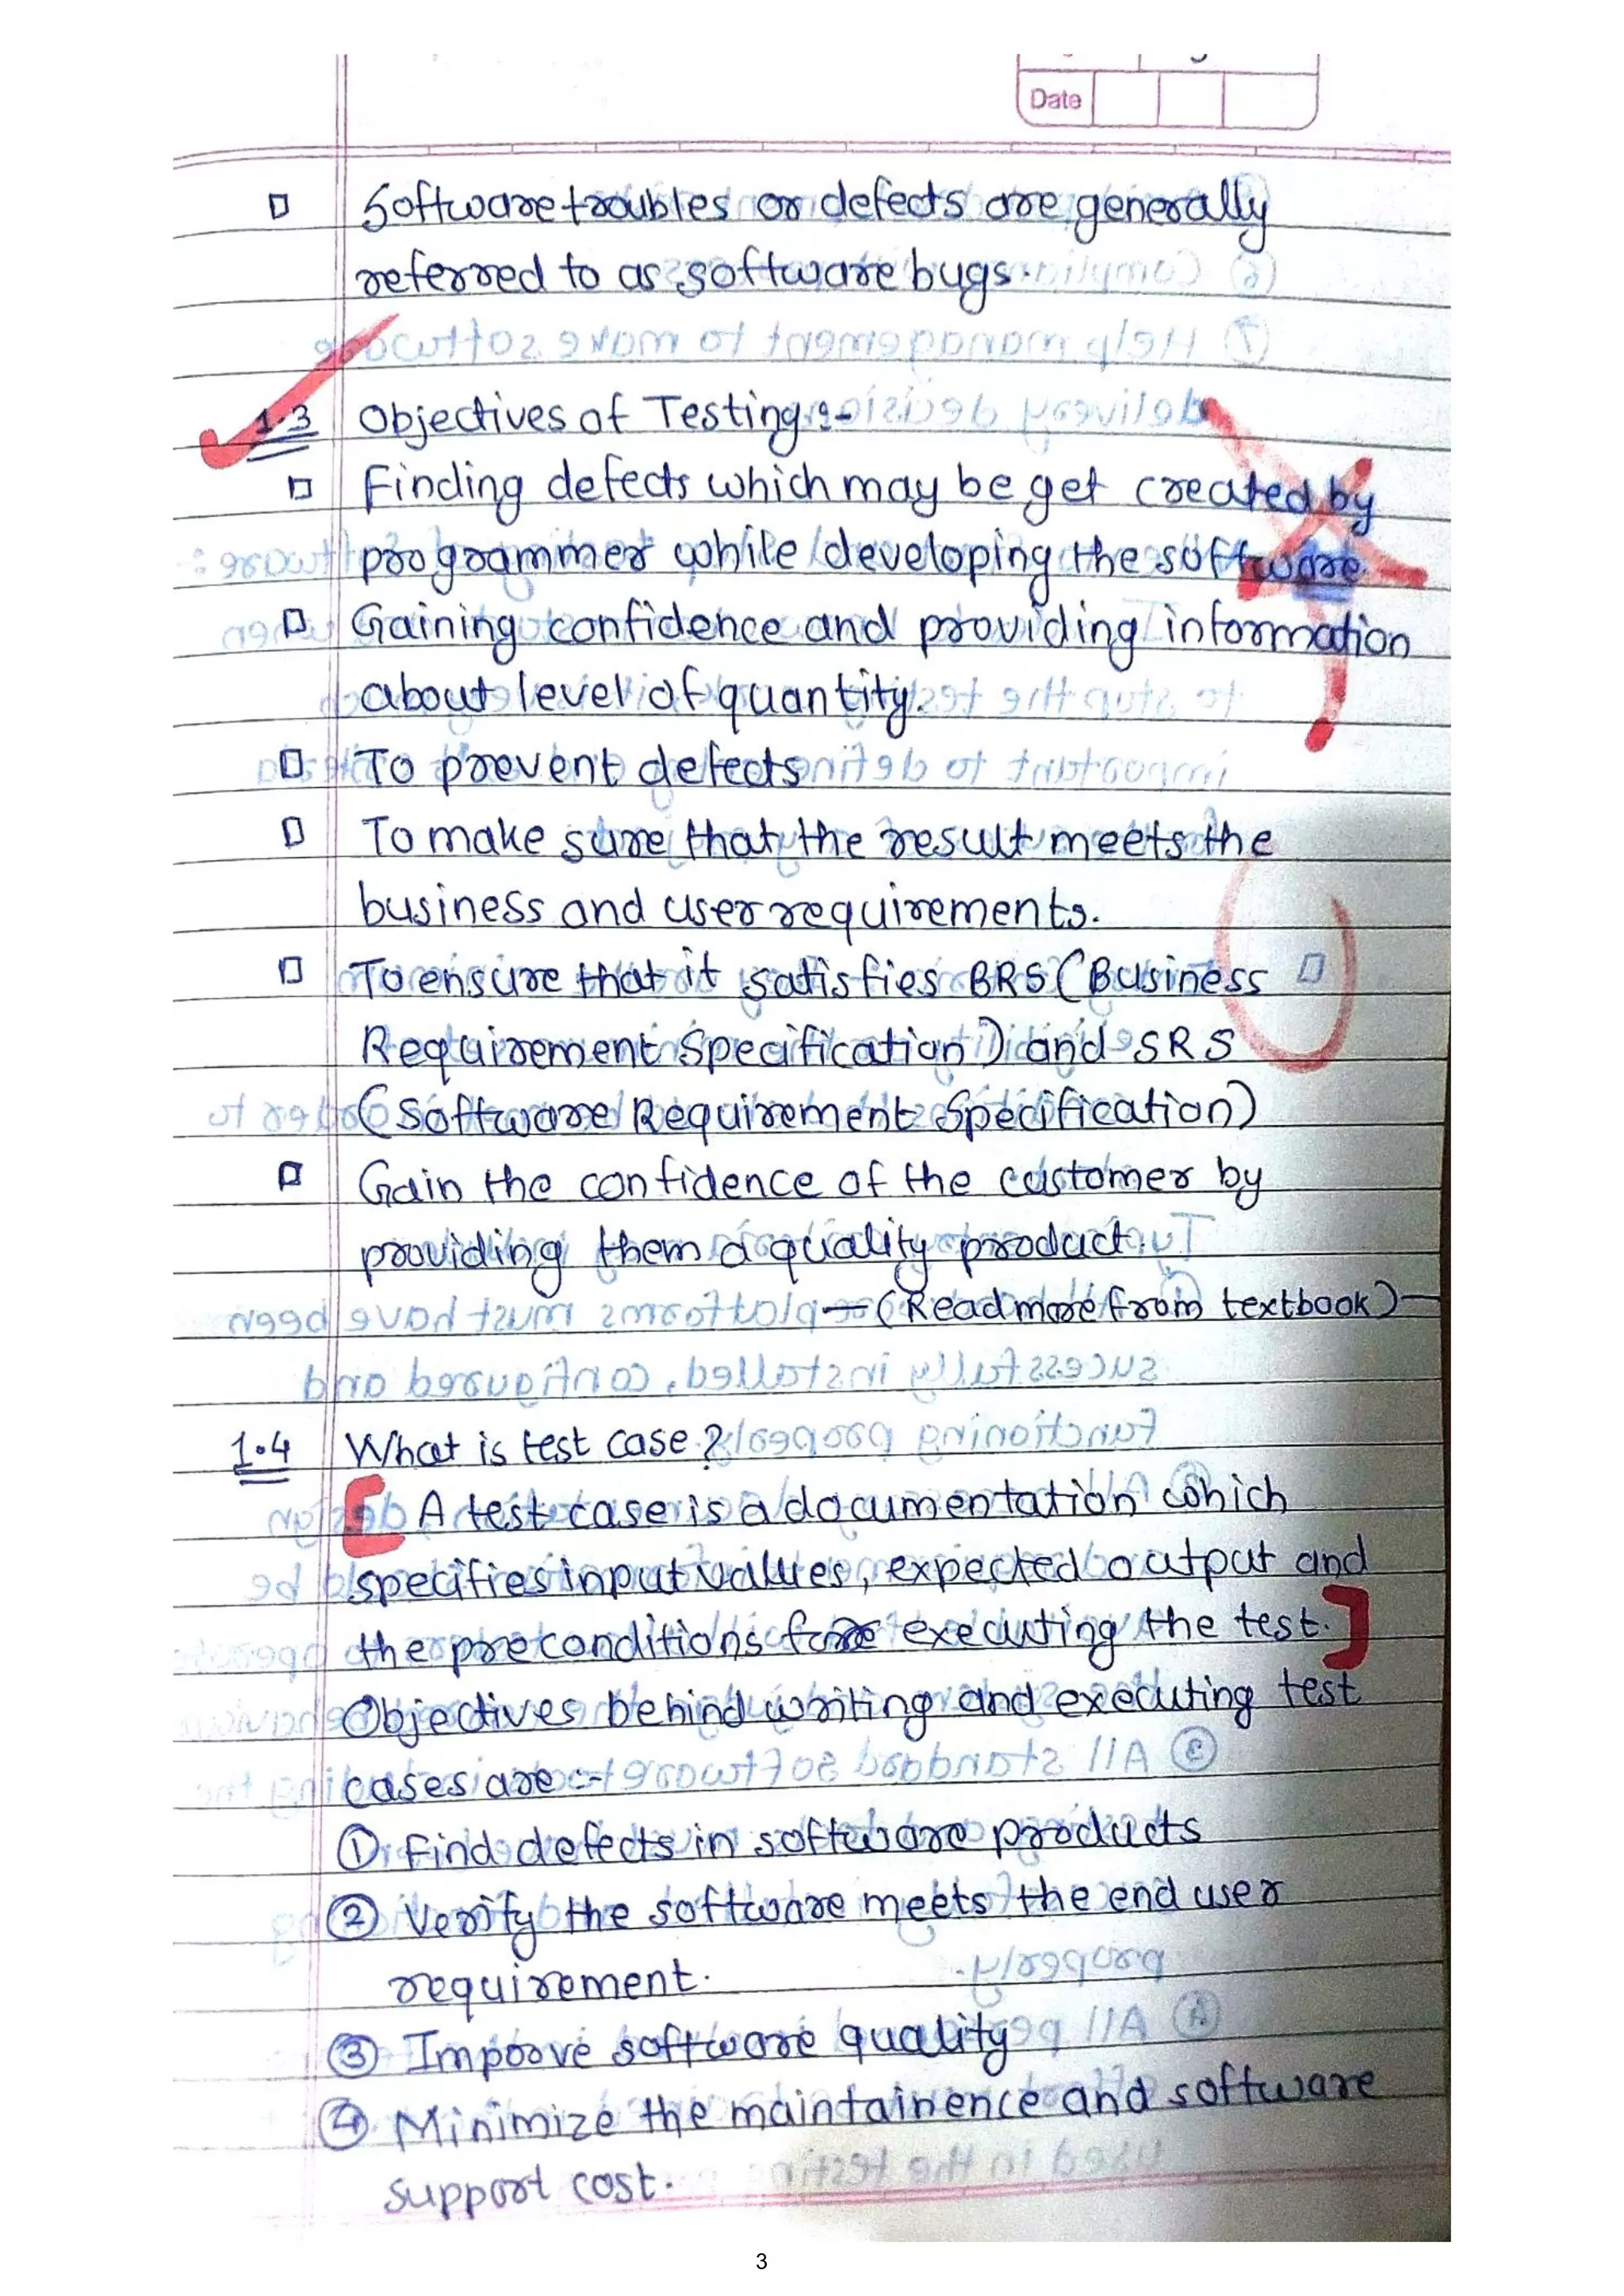 Date
Software troubles or defects are generally
referred to as software bugs.
1.3 Objectives of Testing :-
Finding defects which may be get created by
programmer while developing the software.
Gaining confidence and providing information
about level of quantity.
To prevent defects
To make sure that the result meets the
business and user requirements.
To ensure that it satisfies BRS (Business
Requirement Specification) and SRS
(Software Requirement Specification)
Gain the confidence of the customer by
providing them a quality product.
— (Read more from textbook) —
1.4 What is test case ?
[ A test case is a documentation which
specifies input values, expected output and
the preconditions for executing the test. ]
Objectives behind writing and executing test
cases are :-
① Find defects in software products
② Verify the software meets the end user
requirement.
③ Improve software quality
④ Minimize the maintainence and software
support cost.
3